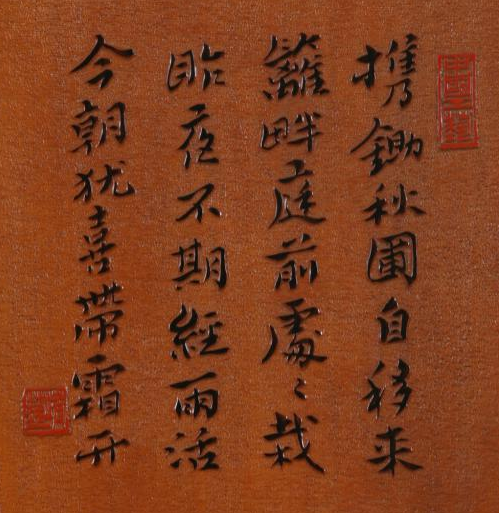 携鋤秋圃自移来
籬畔庭前處〻栽
昨夜不期經雨活
今朝犹喜帶霜开